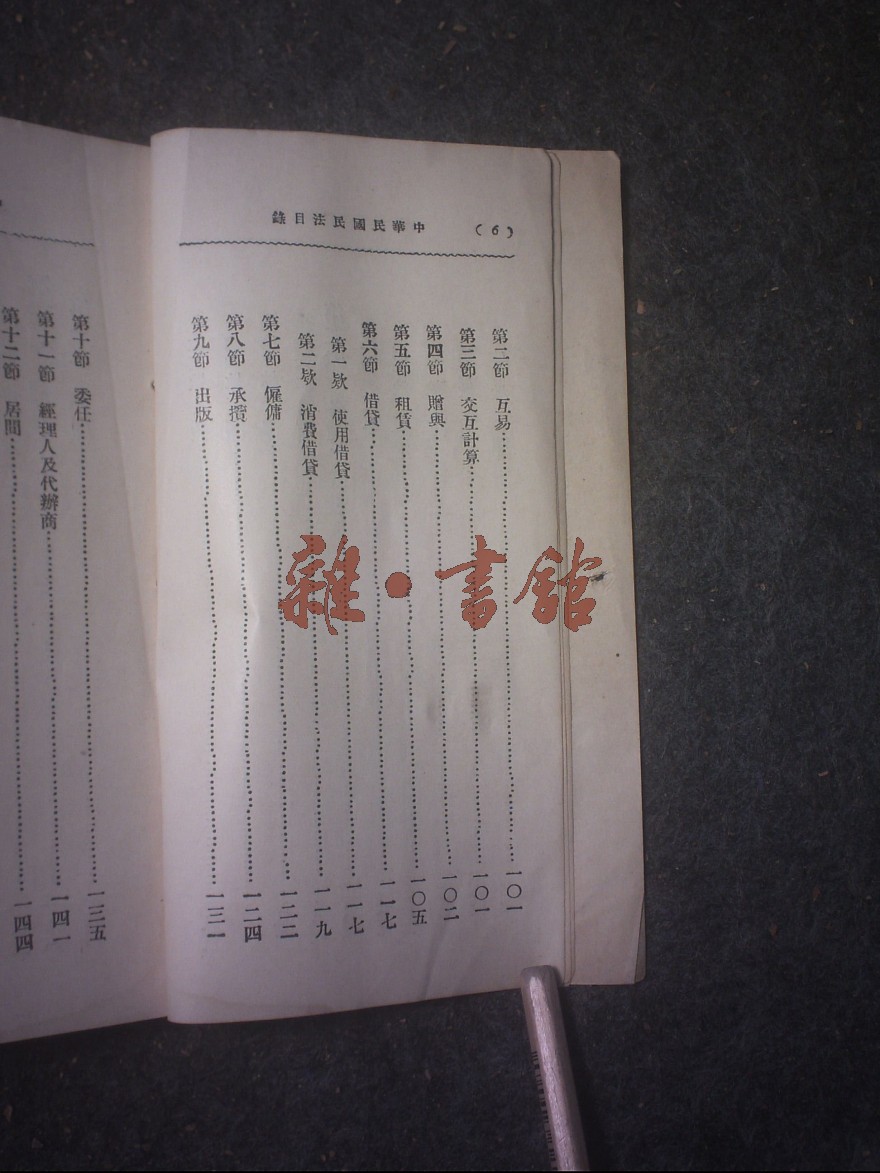 中華民國民法目錄 (6)
第二節 互易 一〇一
第三節 交互計算 一〇一
第四節 贈與 一〇二
第五節 租賃 一〇五
第六節 借貸 一一七
第一欵 使用借貸 一一七
第二欵 消費借貸 一一九
第七節 僱傭 一二二
第八節 承攬 一二四
第九節 出版 一三一
第十節 委任 一三五
第十一節 經理人及代辦商 一四一
第十二節 居間 一四四
雜·書館